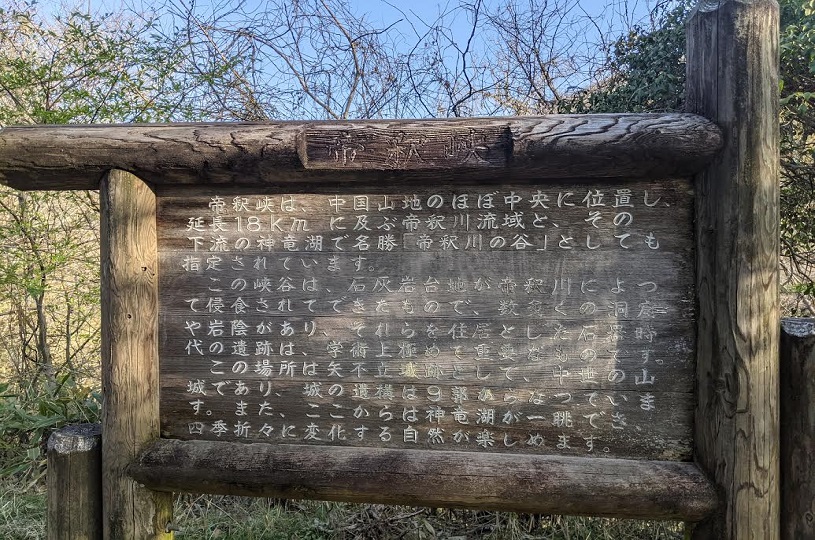 帝釈峡
帝釈峡は、中国山地のほぼ中央に位置し、
延長18kmに及ぶ帝釈川流域と、その
下流の神竜湖で名勝「帝釈川の谷」としても
指定されています。
この峡谷は、石灰岩台地が、帝釈川によつ
て侵食されてできたもので、数多くの洞窟
や岩陰があり、それらを住居とした石器時
代の遺跡は、学術上極めて重要なものです。
この場所は矢不立城跡として、中世の山
城であり、城の遺構は9郭からなっていま
す。また、ここからは神竜湖が一眺でき、
四季折々に変化する自然が楽しめます。